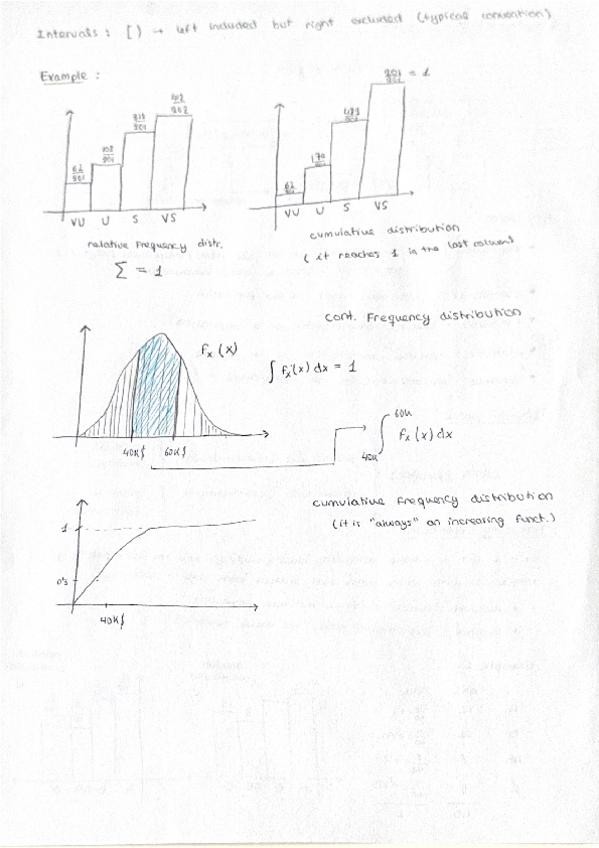 Intervals : [ ) → left included but right excluded (typical convention)
Example :
62/901 108/901 VU U S VS
relative frequency distr.
Σ = 1
62 170 VU U S VS = 1
cumulative distribution
( it reaches 1 in the last column)
cont. frequency distribution
fx (x)
∫ fx(x) dx = 1
40K$ 60K$
∫ 60K 40K fx (x) dx
cumulative frequency distribution
(it is "always" an increasing funct.)
1
0's
40K$